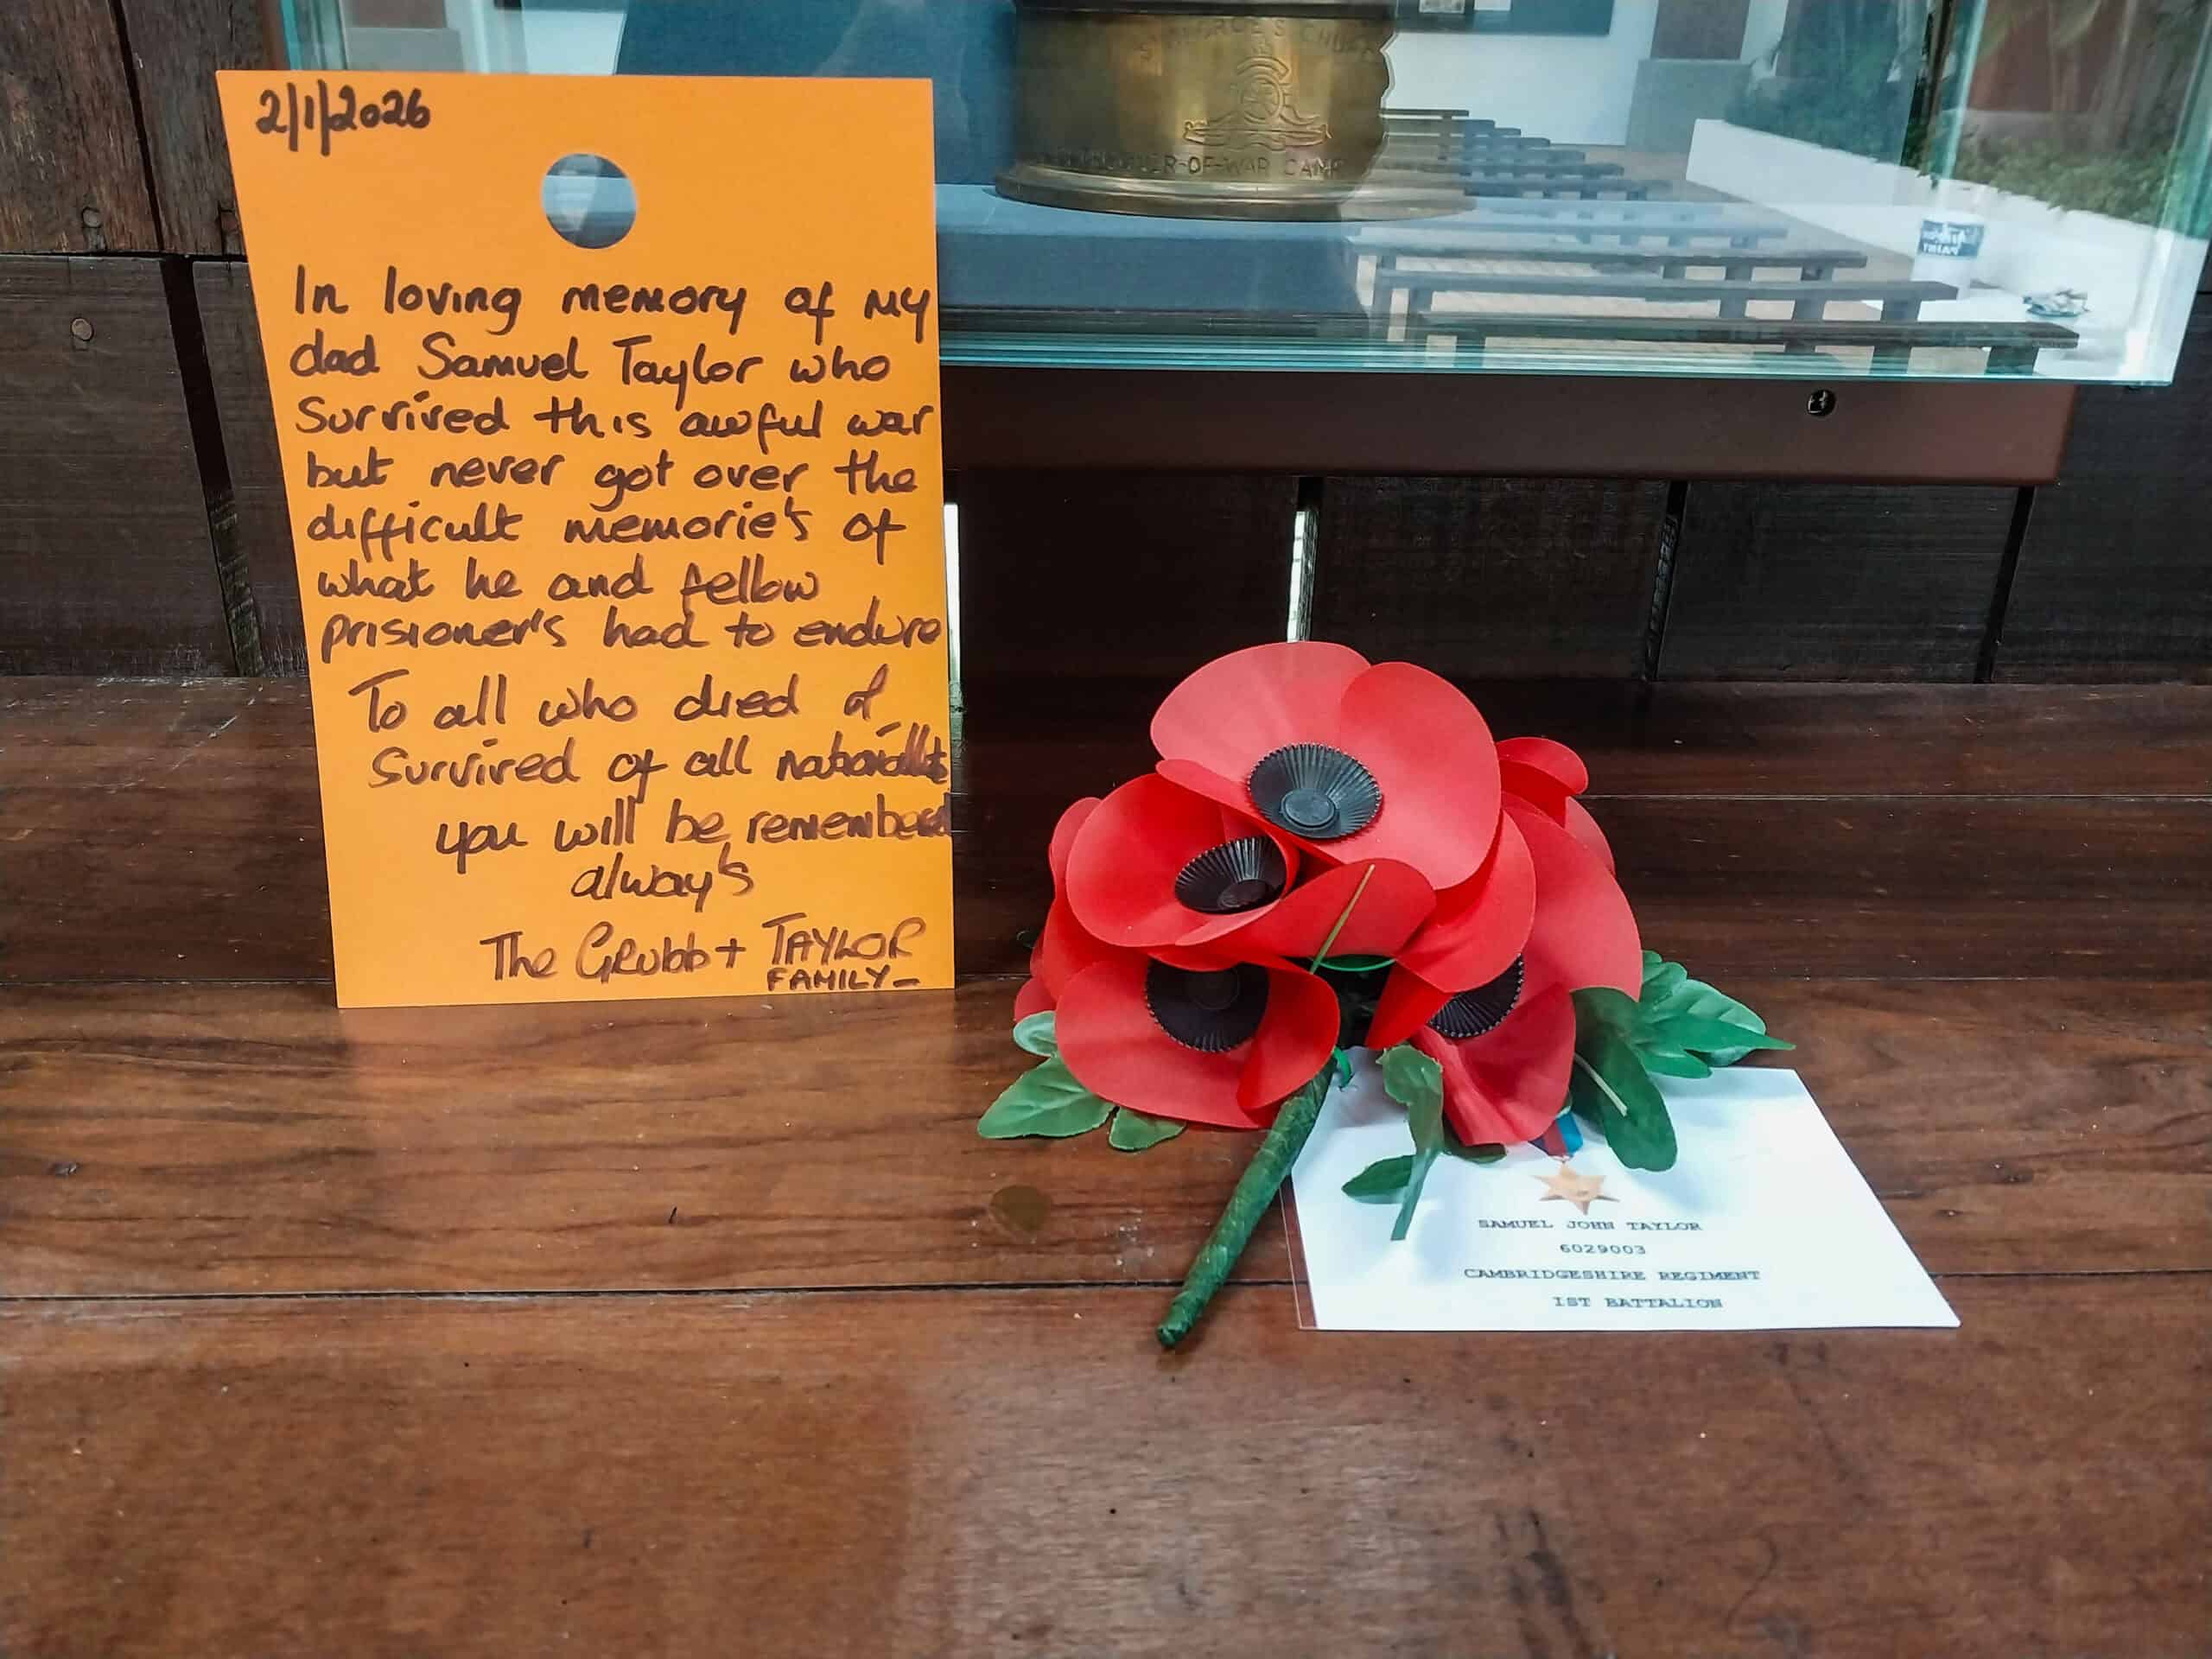 2/1/2026
In loving memory of my
dad Samuel Taylor who
Survived this awful war
but never got over the
difficult memorie's of
what he and fellow
prisioner's had to endure
To all who died of
Survived of all
you will be
alway's
The Grubb + TAYLOR
FAMILY_
OF-WAR CAMP
SAMUEL JOHN TAYLOR
6029003
CAMBRIDGESHIRE REGIMENT
1ST BATTALION